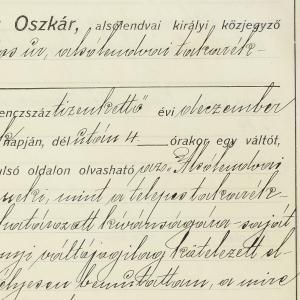 Oszkár, alsólendvai királyi közjegyző
úr, alsólendvai takarék-
enczszáz tizenkettő évi deczember
napján, dél után 4 órakor egy váltót,
ulsó oldalon olvasható az Alsólendvai
neki, mint a telepes takarék-
határozott kívánságára saját
váltójogilag kötelezett el-
bemutattam, a mire